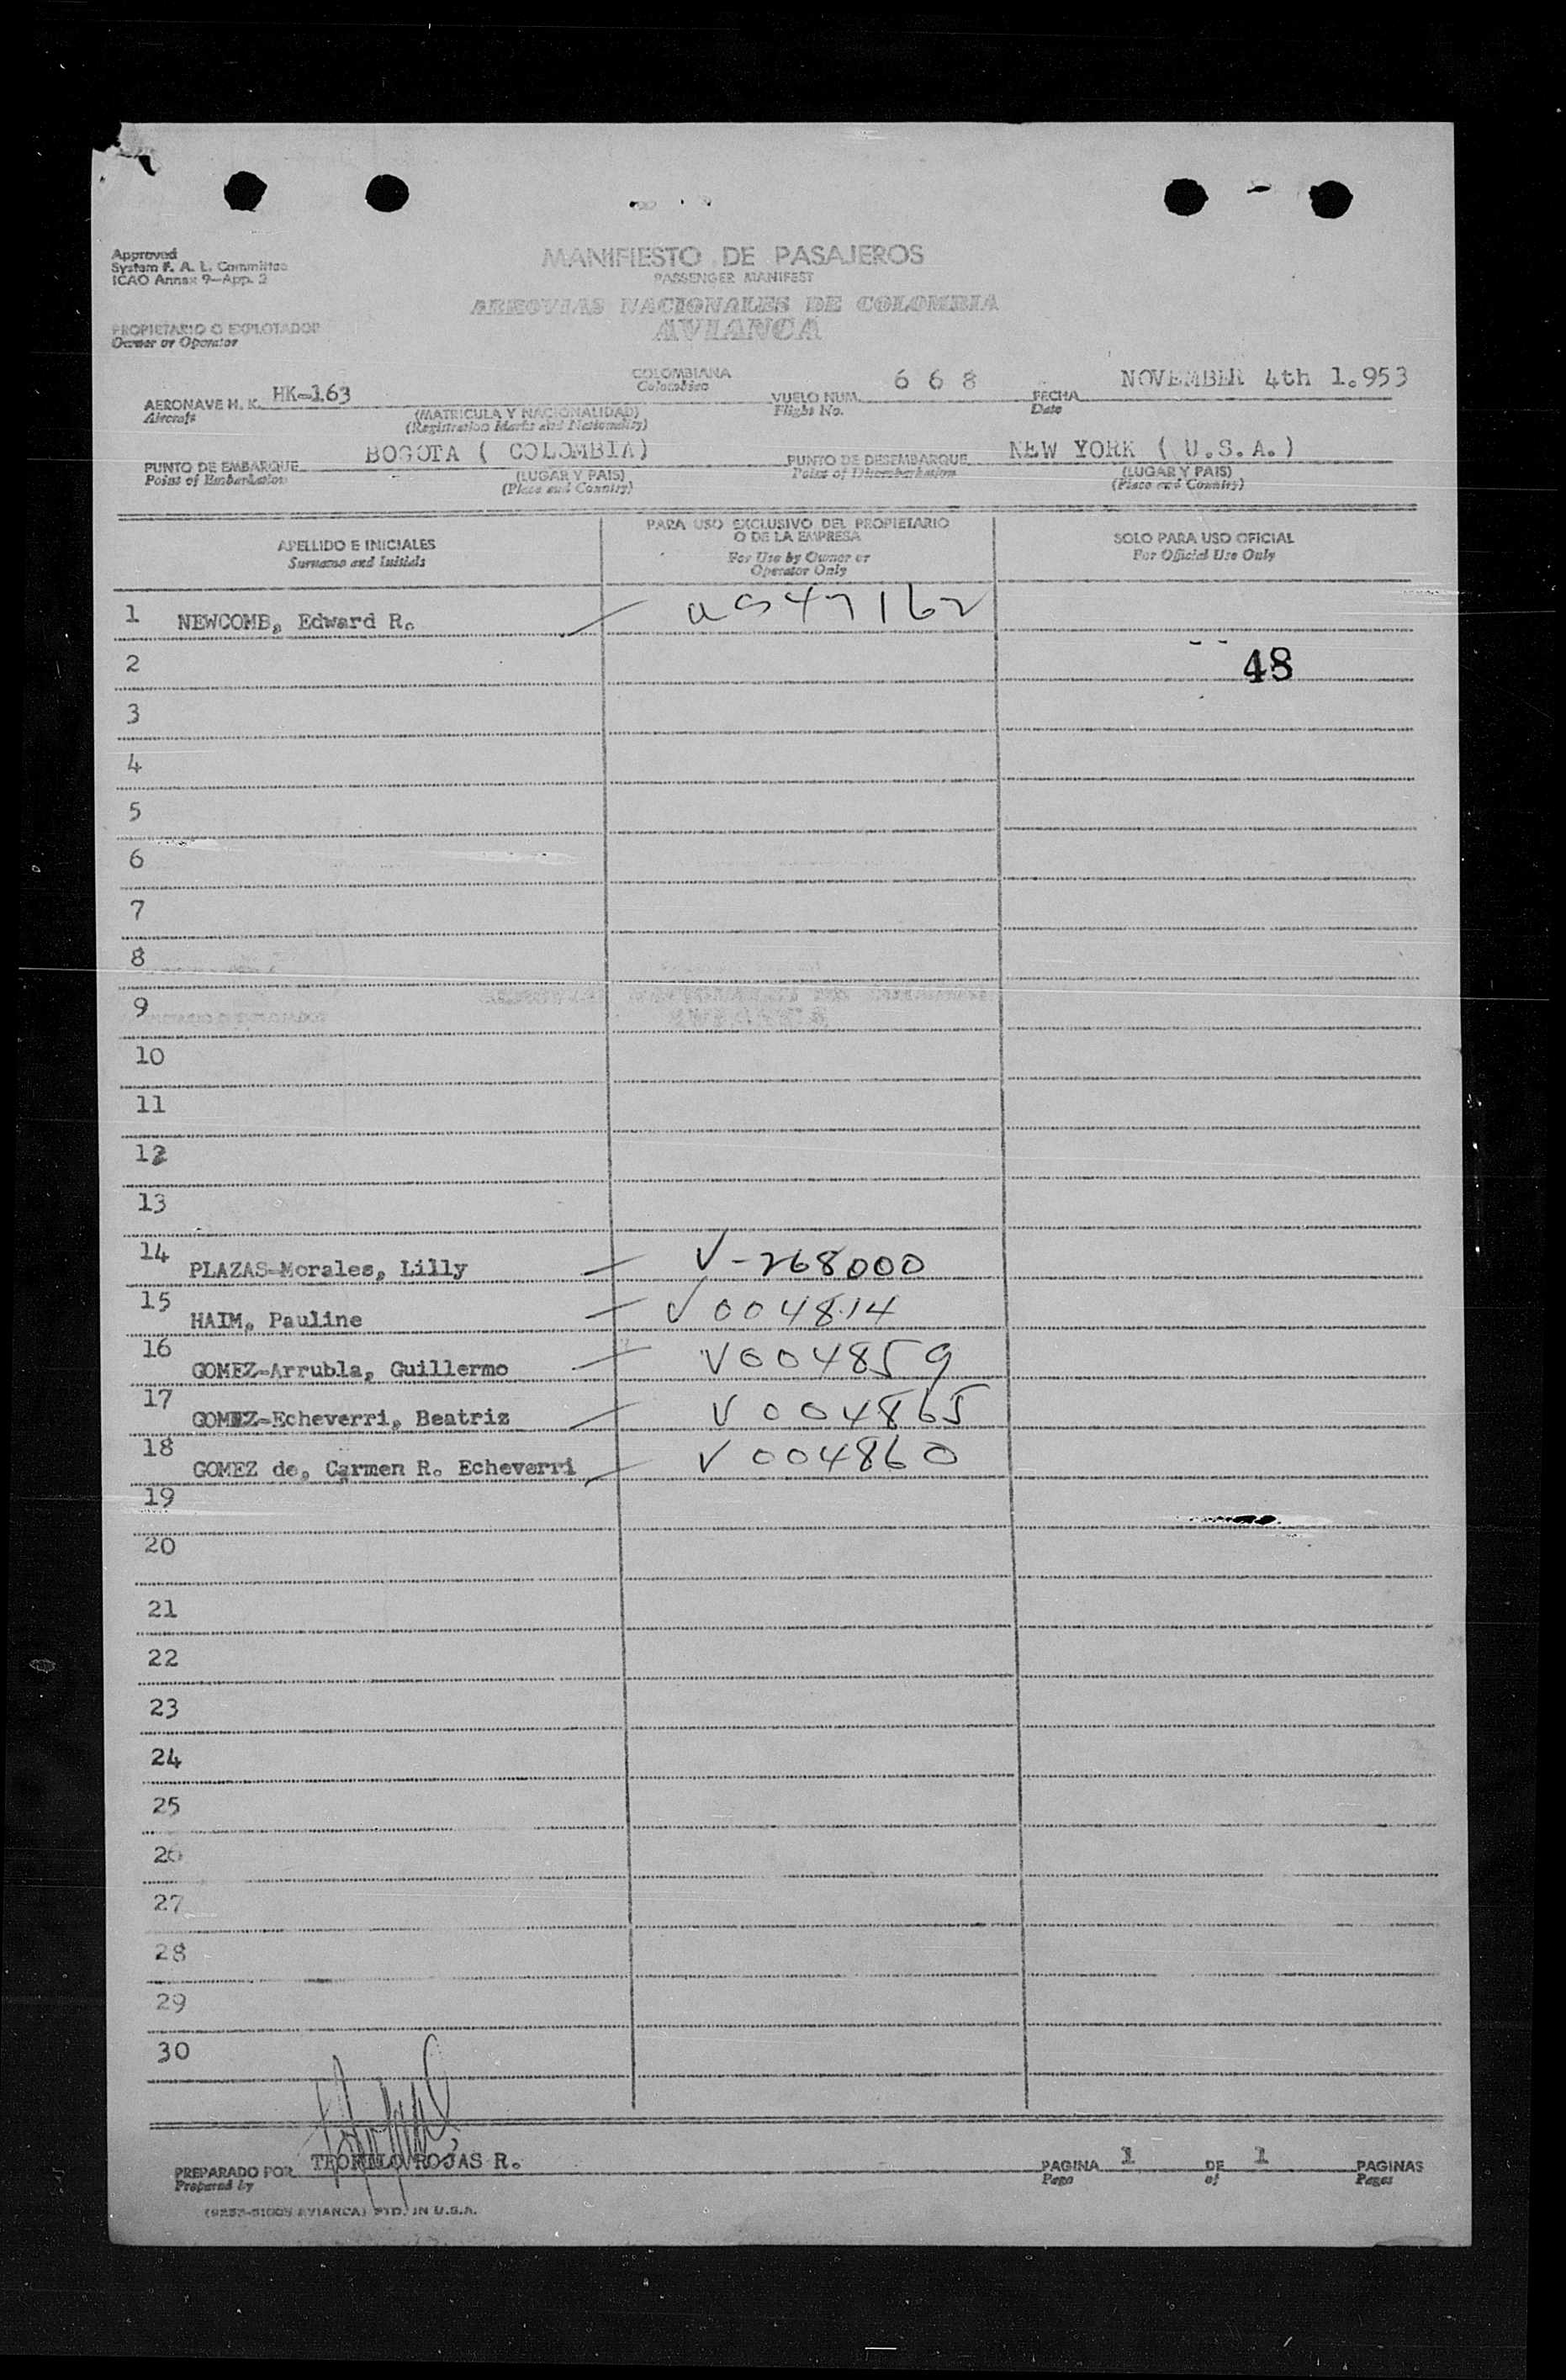 Approved
System F. A. L. Committee
ICAO Annex 9—App. 2
MANIFIESTO DE PASAJEROS
PASSENGER MANIFEST
AEROVIAS NACIONALES DE COLOMBIA
AVIANCA
PROPIETARIO O EXPLOTADOR
Owner or Operator
AERONAVE H. K. HK-163 COLOMBIANA VUELO NUM. 6 6 8 FECHA NOVEMBER 4th 1.953
Aircraft Colombian Flight No. Date
(MATRICULA Y NACIONALIDAD)
(Registration Marks and Nationality)
PUNTO DE EMBARQUE BOGOTA ( COLOMBIA) PUNTO DE DESEMBARQUE NEW YORK ( U.S.A.)
Point of Embarkation (LUGAR Y PAIS) Point of Disembarkation (LUGAR Y PAIS)
(Place and Country) (Place and Country)
APELLIDO E INICIALES PARA USO EXCLUSIVO DEL PROPIETARIO O DE LA EMPRESA SOLO PARA USO OFICIAL
Surname and Initials For Use by Owner or Operator Only For Official Use Only
1 NEWCOMB, Edward R. 47162
2 48
3
4
5
6
7
8
9
10
11
12
13
14 PLAZAS-Morales, Lilly V-268000
15 HAIM, Pauline V004814
16 GOMEZ-Arrubla, Guillermo V004859
17 GOMEZ-Echeverri, Beatriz V004865
18 GOMEZ de, Carmen R. Echeverri V004860
19
20
21
22
23
24
25
26
27
28
29
30
PREPARADO POR TEOFILO ROJAS R. PAGINA 1 DE 1 PAGINAS
Prepared by Page of Pages
AVIANCA) PTD. IN U.S.A.